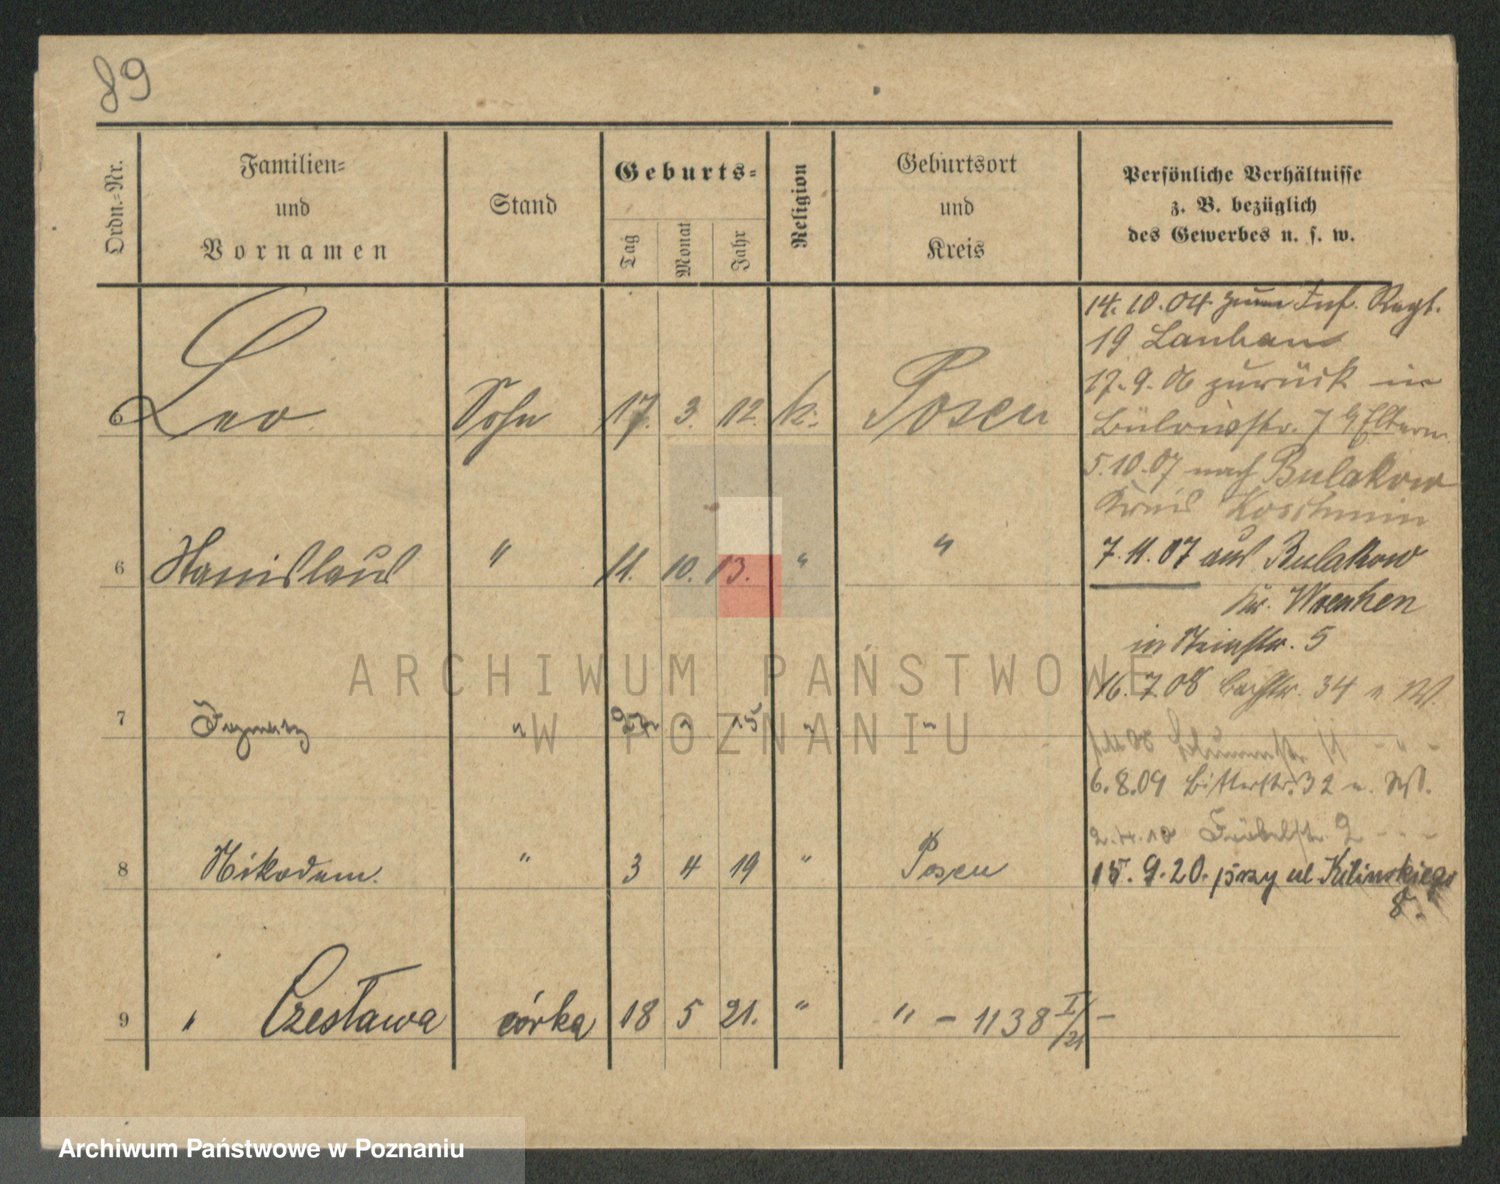 89
Ordn.-Nr.
Familien-
und
Vornamen
Stand
Geburts-
Tag
Monat
Jahr
Religion
Geburtsort
und
Kreis
Persönliche Verhältnisse
z. B. bezüglich
des Gewerbes u. s. w.
6 Leo Sohn 17. 3. 12. k. Posen
6 Stanislaus " 11. 10. 13. " "
7 Ignatz " 27 " 15 " "
8 Nikodem. " 3 4 19 " Posen
9 " Czesława córka 18 5 21. " " - 1138 I/21 -
14.10.04. zum Inf. Regt.
19 Lauban
17.9.06 zurück in
Bülowstr. 7 Eltern
5.10.07 nach Bulakow
Kreis Koschmin
7.11.07 aus Bulakow
Kr.
in 5
16.7.08 Bachstr. 34 n. W.
08 11 - " -
6.8.09 Bitterstr. 32 n. W.
2.4.10 Fröbelstr. 2 - - -
15.9.20. przy ul Kilinskiego
8.
ARCHIWUM PAŃSTWOWE
W POZNANIU
Archiwum Państwowe w Poznaniu